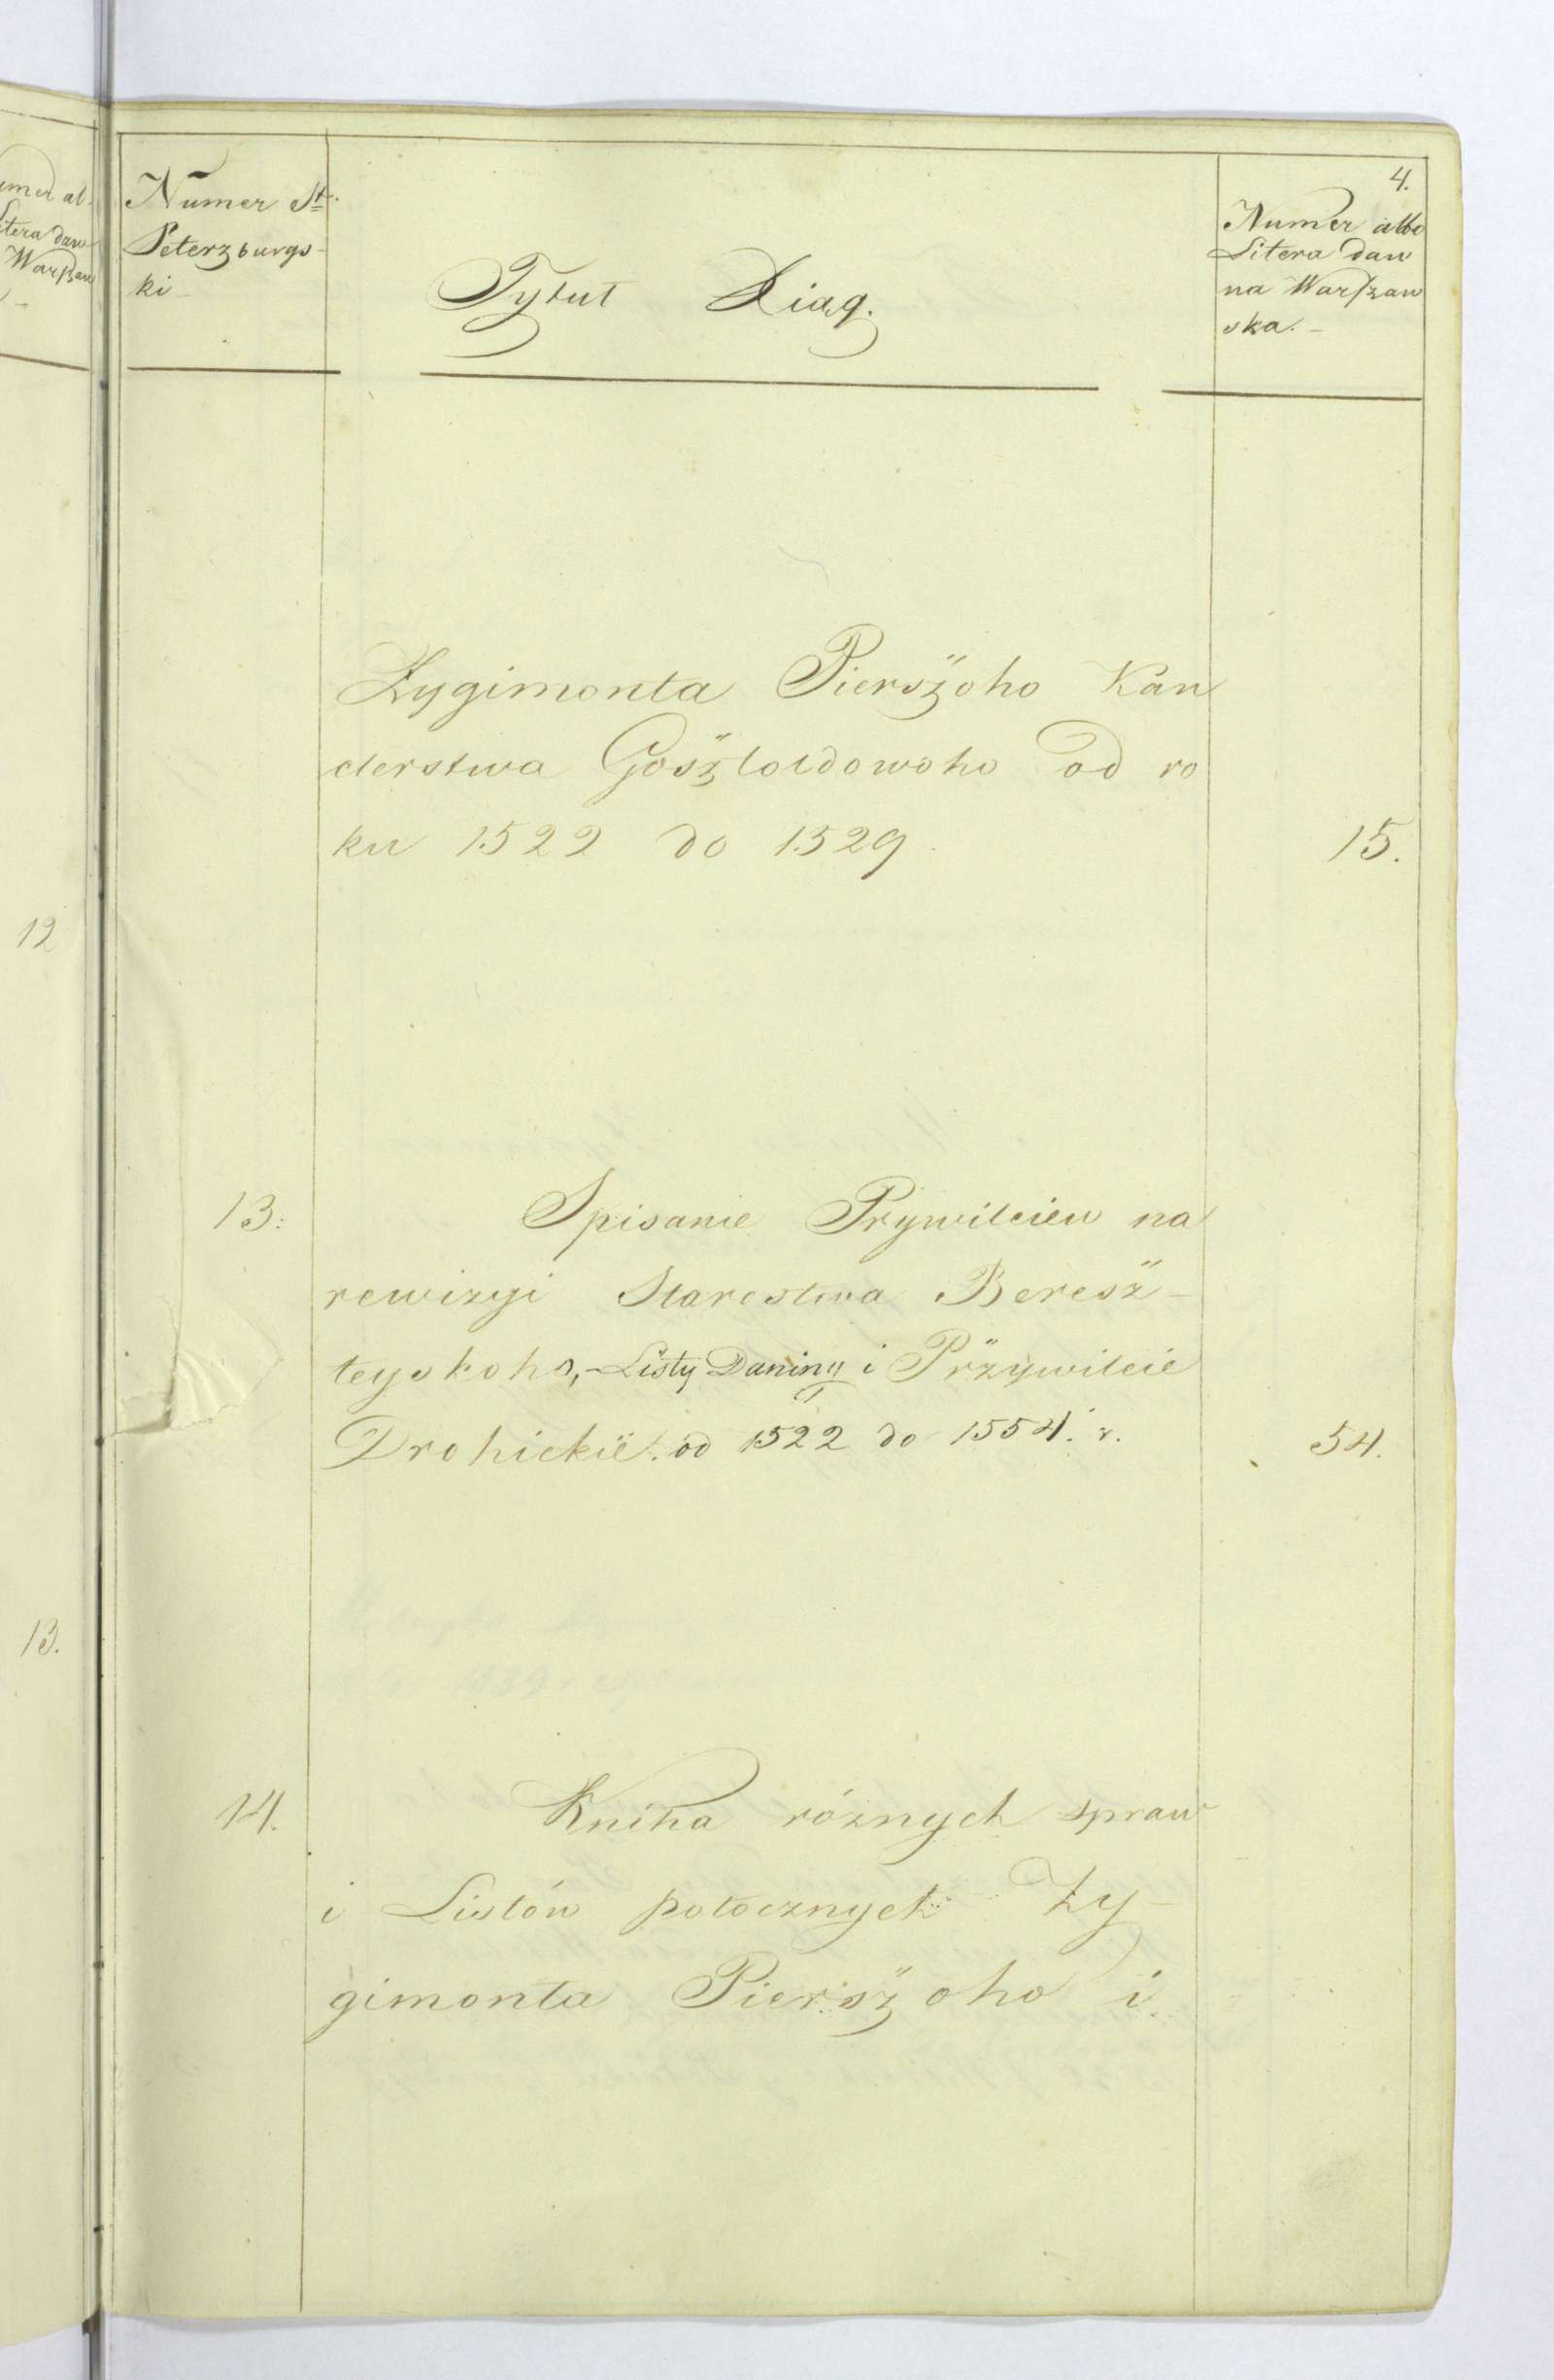 4.
Numer St.
Peterzburgs-
ki
Tytuł Xiąg.
Numer albo
Litera daw
na Warszaw
ska.
Zygimonta Pierszoho Kan
clerstwa Gosztołdowoho od ro
ku 1522 do 1529.
15.
13.
Spisanie Prywileiew na
rewizyi Starostwa Beresz-
teyskoho, Listy Daniny i Przywileie
Drohickie od 1522 do 1554. r.
54.
14.
Kniha róznych spraw
i Listów potocznych Zy-
gimonta Pierszoho i
12
13.